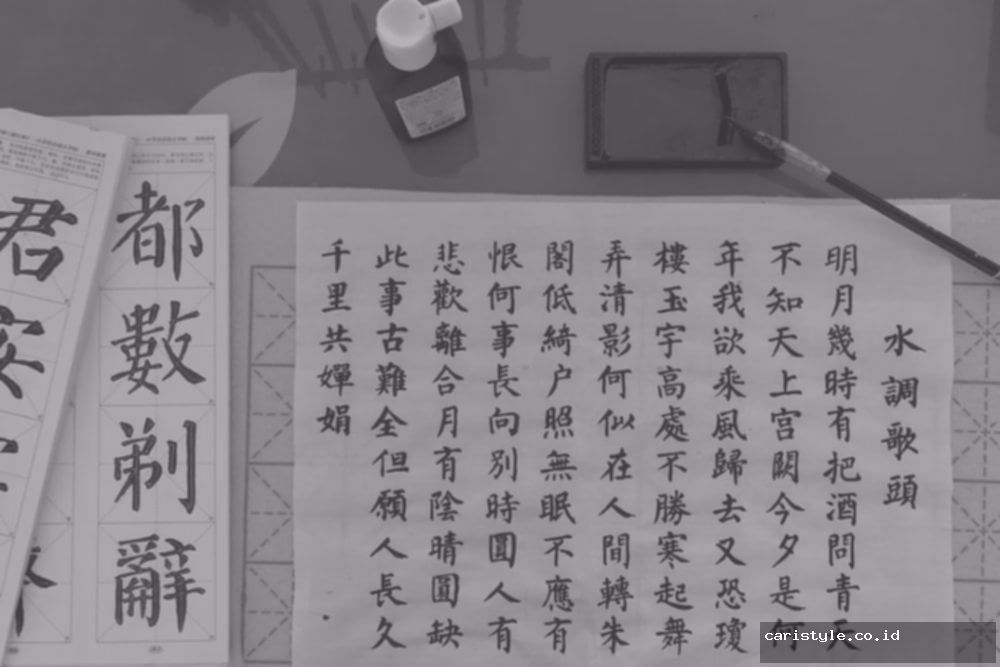 水調歌頭
明月幾時有把酒問青天
不知天上宫闕今夕是何
年我欲乘風歸去又恐瓊
樓玉宇高處不勝寒起舞
弄清影何似在人間轉朱
閣低綺户照無眠不應有
恨何事長向别時圓人有
悲歡離合月有陰晴圓缺
此事古難全但願人長久
千里共嬋娟
都數剃辭
君安
caristyle.co.id